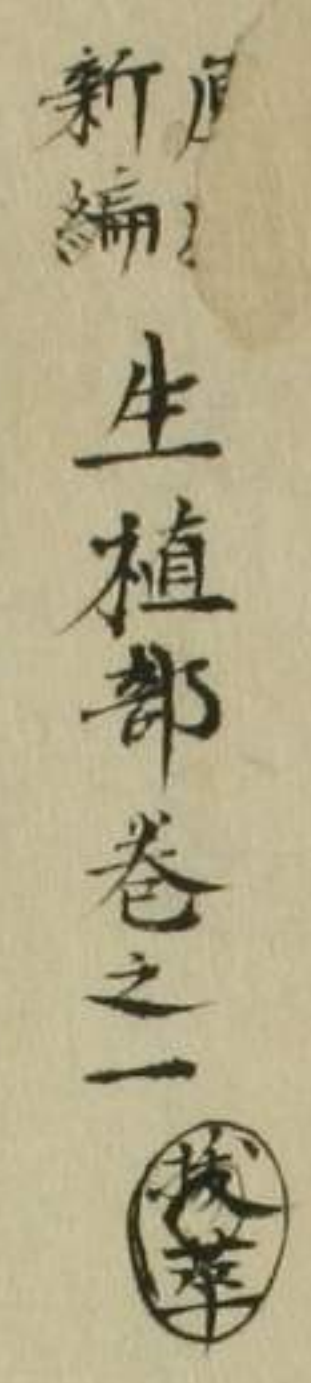 新編
生植部卷之一
拔萃